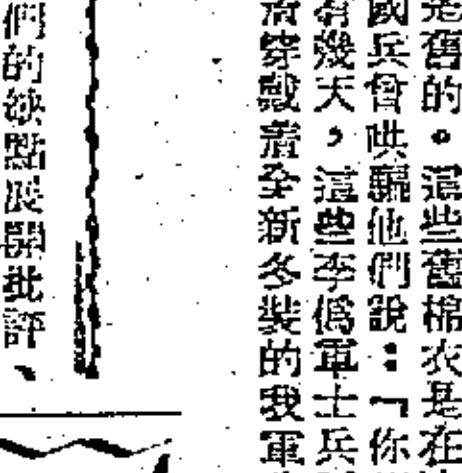 是舊的。這些舊棉衣是在
國兵會哄騙他們說：「你
有幾天，這些李僞軍士兵
着穿戴着全新冬裝的我軍
們的缺點展開批評、